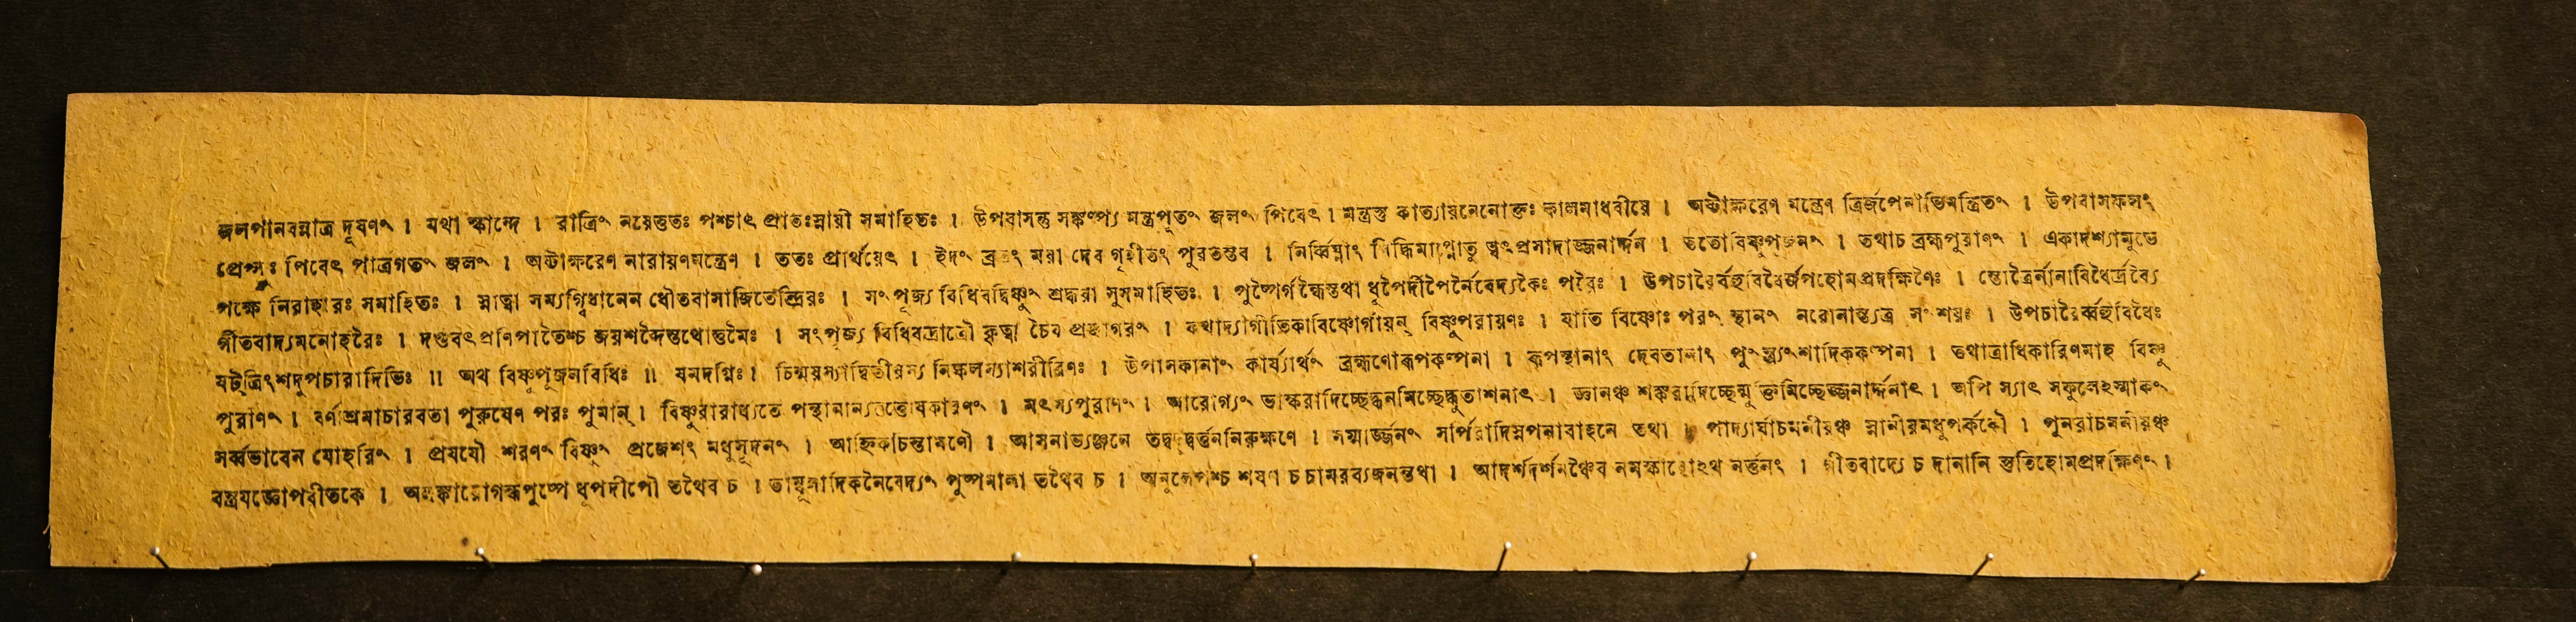 জলপানবন্নাত্র দূষণং । যথা স্কান্দে । রাত্রিং নয়েত্ততঃ পশ্চাৎ প্রাতঃস্নায়ী সমাহিতঃ । উপবাসন্তু সঙ্কল্প্য মন্ত্রপূতং জলং পিবেৎ । মন্ত্রস্তু কাত্যায়নেনোক্তঃ কালমাধবীয়ে । অষ্টাক্ষরেণ মন্ত্রেণ ত্রির্জপেনাভিমন্ত্রিতং । উপবাসফলং
প্রেপ্সুঃ পিবেৎ পাত্রগতং জলং । অষ্টাক্ষরেণ নারায়ণমন্ত্রেণ । ততঃ প্রার্থয়েৎ । ইদং ব্রতং ময়া দেব গৃহীতং পুরতস্তব । নির্ব্বিঘ্নাং সিদ্ধিমাপ্নোতু ত্বৎপ্রসাদাজ্জনার্দ্দন । ততোবিষ্ণুপূজনং । তথাচ ব্রহ্মপুরাণং । একাদশ্যামুভে
পক্ষে নিরাহারঃ সমাহিতঃ । স্নাত্বা সম্যগ্বিধানেন ধৌতবাসাজিতেন্দ্রিয়ঃ । সংপূজ্য বিধিবদ্বিষ্ণুং শ্রদ্ধয়া সুসমাহিতঃ । পুষ্পৈর্গন্ধৈস্তথা ধূপৈর্দীপৈর্নৈবেদ্যকৈঃ পরৈঃ । উপচারৈর্বহুবিধৈর্জপহোমপ্রদক্ষিণৈঃ । স্তোত্রৈর্নানাবিধৈর্দ্রব্যৈ
র্গীতবাদ্যমনোহরৈঃ । দণ্ডবৎপ্রণিপাতৈশ্চ জয়শব্দৈস্তথোত্তমৈঃ । সংপূজ্য বিধিবদ্রাত্রৌ কৃত্বা চৈব প্রজাগরং । কথাদ্যাগীতিকাবিষ্ণোর্গায়ন্ বিষ্ণুপরায়ণঃ । যাতি বিষ্ণোঃ পরং স্থানং নরোনাস্ত্যত্র সংশয়ঃ । উপচারৈর্ব্বহুবিধৈঃ
ষট্ত্রিংশদুপচারাদিভিঃ ॥ অথ বিষ্ণুপূজনবিধিঃ ॥ যমদগ্নিঃ । চিন্ময়স্যাদ্বিতীয়স্য নিষ্কলস্যাশরীরিণঃ । উপাসকানাং কার্য্যার্থং ব্রহ্মণোরূপকল্পনা । রূপস্থানাং দেবতানাং পুংস্ত্র্যংশাদিককল্পনা । তথাত্রাধিকারিণমাহ বিষ্ণু
পুরাণং । বর্ণাশ্রমাচারবতা পুরুষেণ পরঃ পুমান্ । বিষ্ণুরারাধ্যতে পন্থানান্যতত্তোষকারণং । মৎস্যপুরাণং । আরোগ্যং ভাস্করাদিচ্ছেদ্ধনমিচ্ছেদ্ধুতাশনাৎ । জ্ঞানঞ্চ শঙ্করাদিচ্ছেন্মুক্তিমিচ্ছেজ্জনার্দ্দনাৎ । অপি স্যাৎ সকুলেহস্মাকং
সর্ব্বভাবেন যোহরিং । প্রযযৌ শরণং বিষ্ণুং প্রজেশং মধুসূদনং । আহ্নিকচিন্তামণৌ । আসনাভ্যঞ্জনে তদ্বদুদ্বর্ত্তননিরুক্ষণে । সম্মার্জ্জনং সর্পিরাদিস্নপনাবাহনে তথা । পাদ্যার্ঘ্যাচমনীয়ঞ্চ স্নানীয়মধুপর্ককৌ । পুনরাচমনীয়ঞ্চ
বস্ত্রযজ্ঞোপবীতকে । অলঙ্কারোগন্ধপুষ্পে ধূপদীপৌ তথৈব চ । তাম্বূলাদিকনৈবেদ্যং পুষ্পমালা তথৈব চ । অনুলেপশ্চ শয্যা চ চামরব্যজনন্তথা । আদর্শদর্শনঞ্চৈব নমস্কারোহথ নর্ত্তনং । গীতবাদ্যে চ দানানি স্তুতিহোমপ্রদক্ষিণং ।